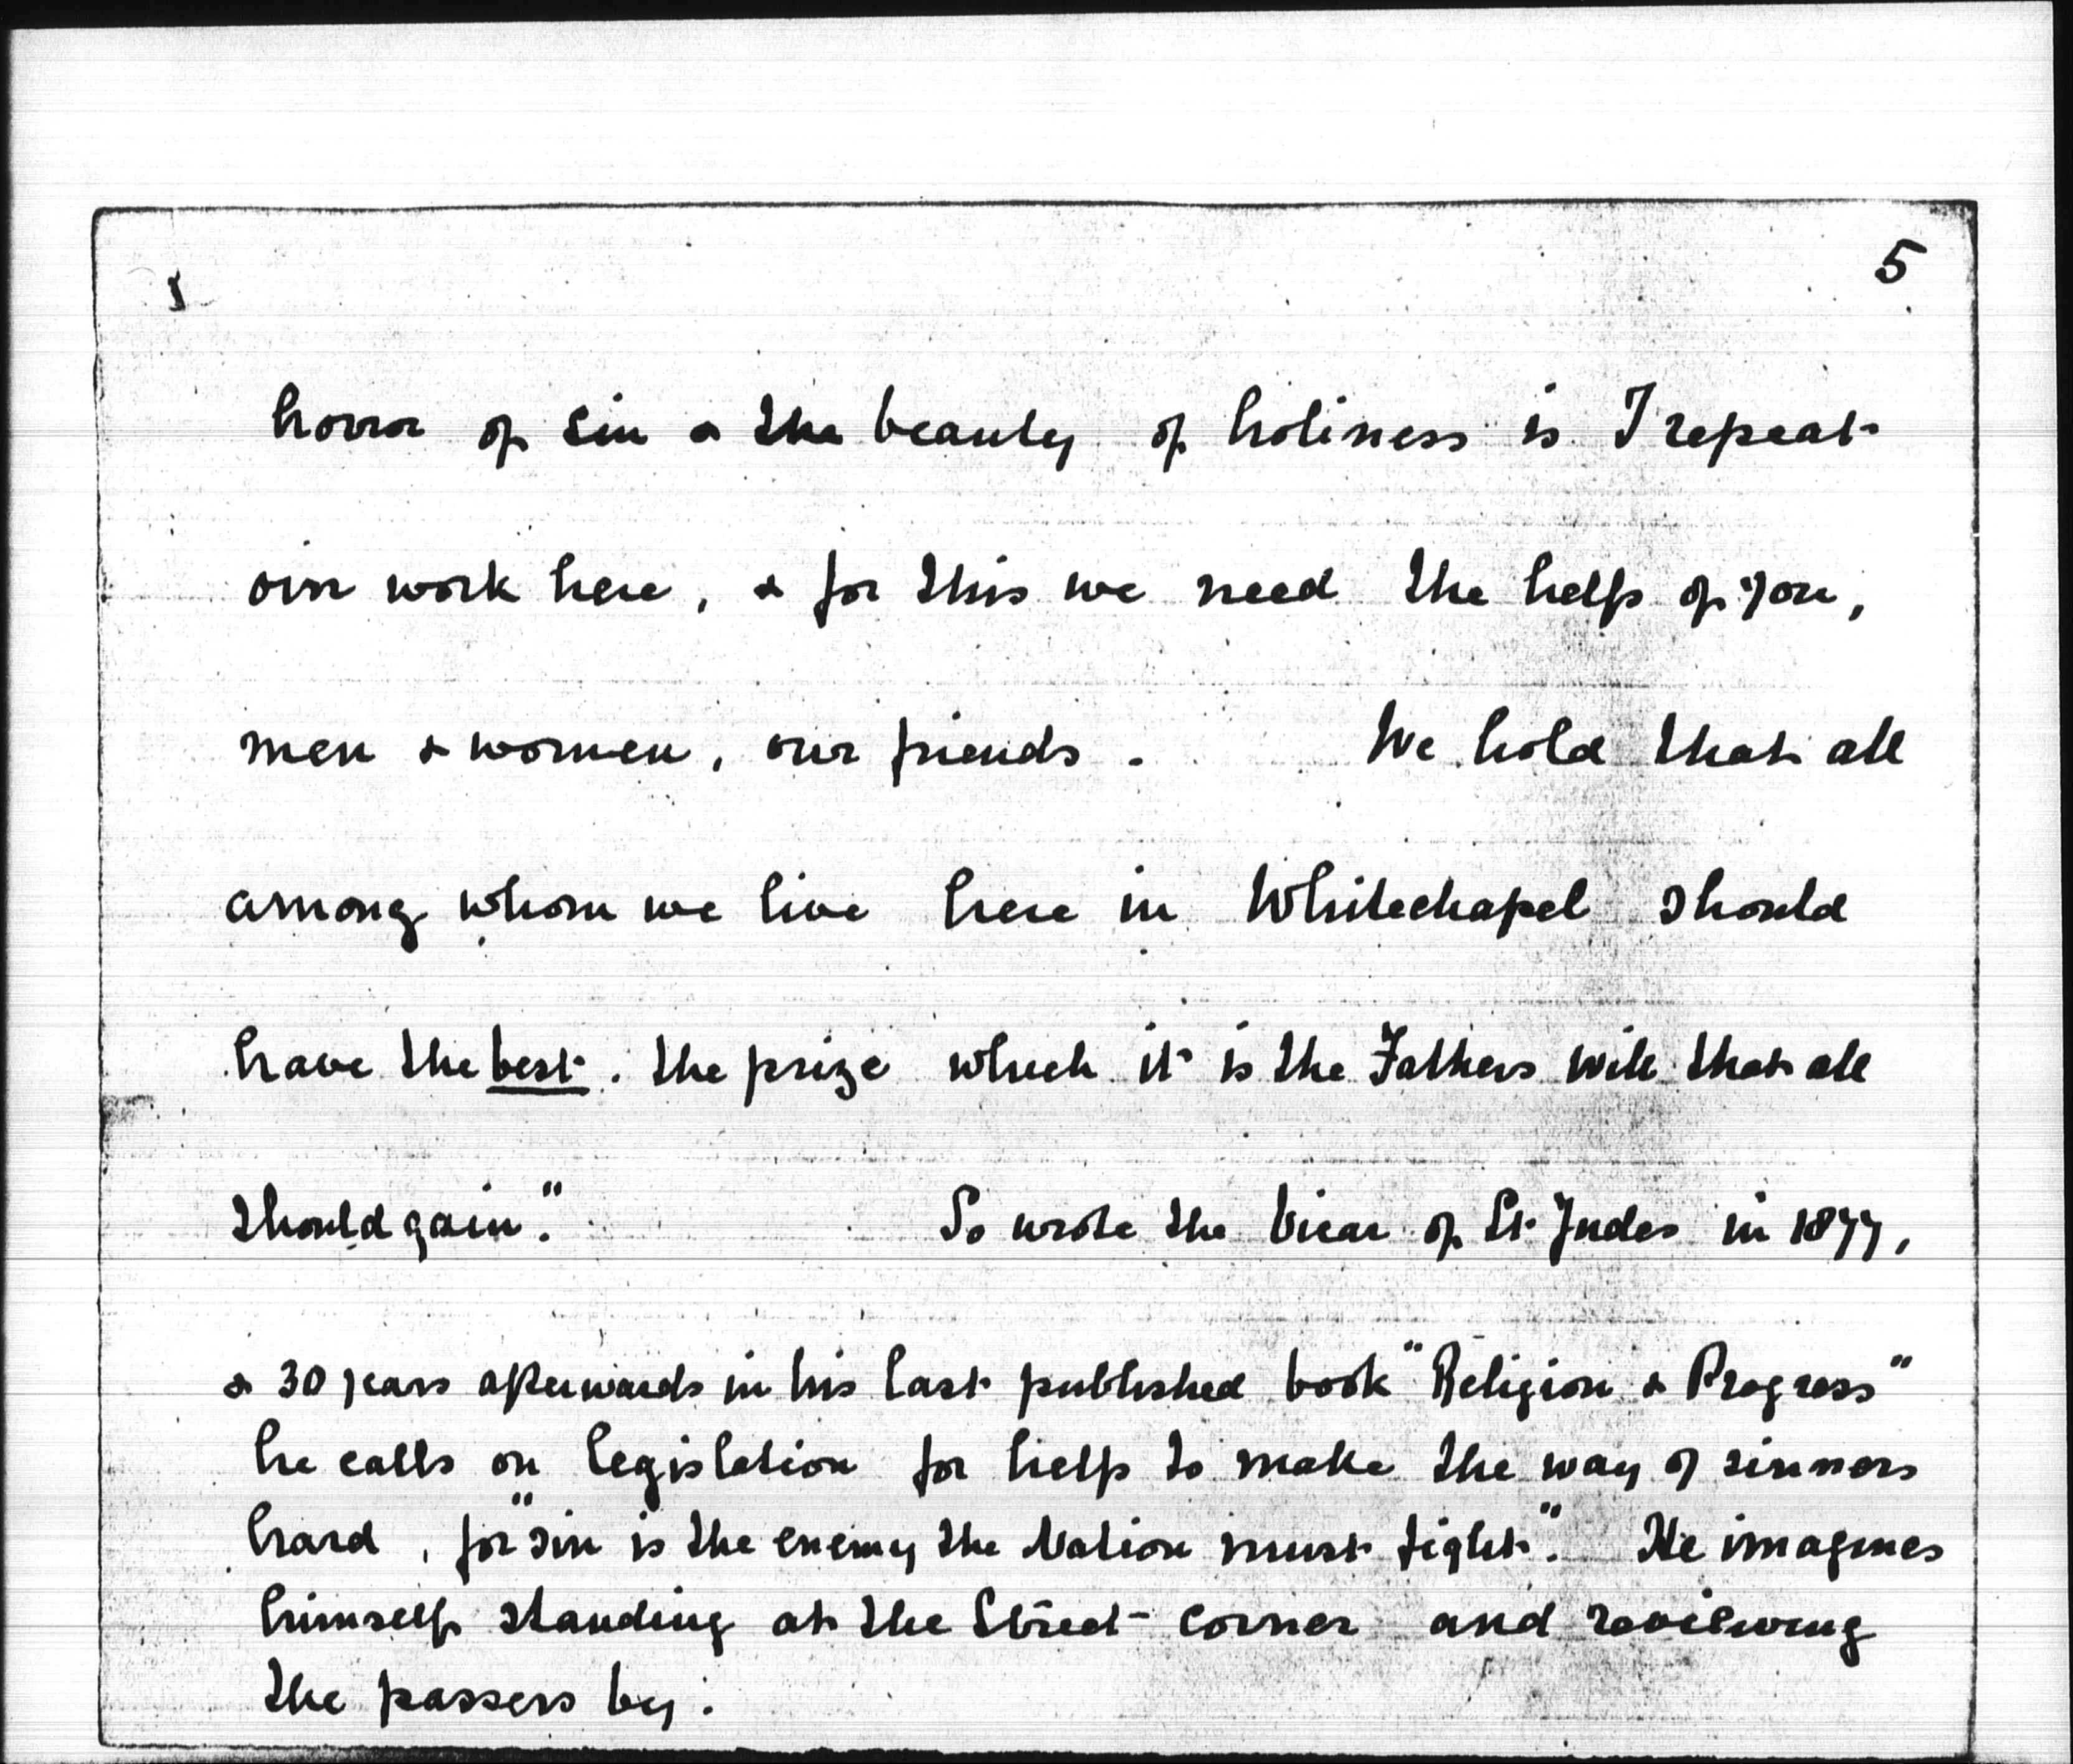 5
horror of sin & the beauty of holiness is I repeat
our work here, & for this we need the help of you,
men & women, our friends. We hold that all
among whom we live here in Whitechapel should
have the best. the prize which it is the Fathers will that all
should gain."
So wrote the Vicar of St Judes in 1877,
& 30 years afterwards in his last published book "Religion & Progress"
he calls on legislation for help to make the way of sinners
hard, for "sin is the enemy the Nation must fight." He imagines
himself standing at the Street corner and reviewing
the passers by: